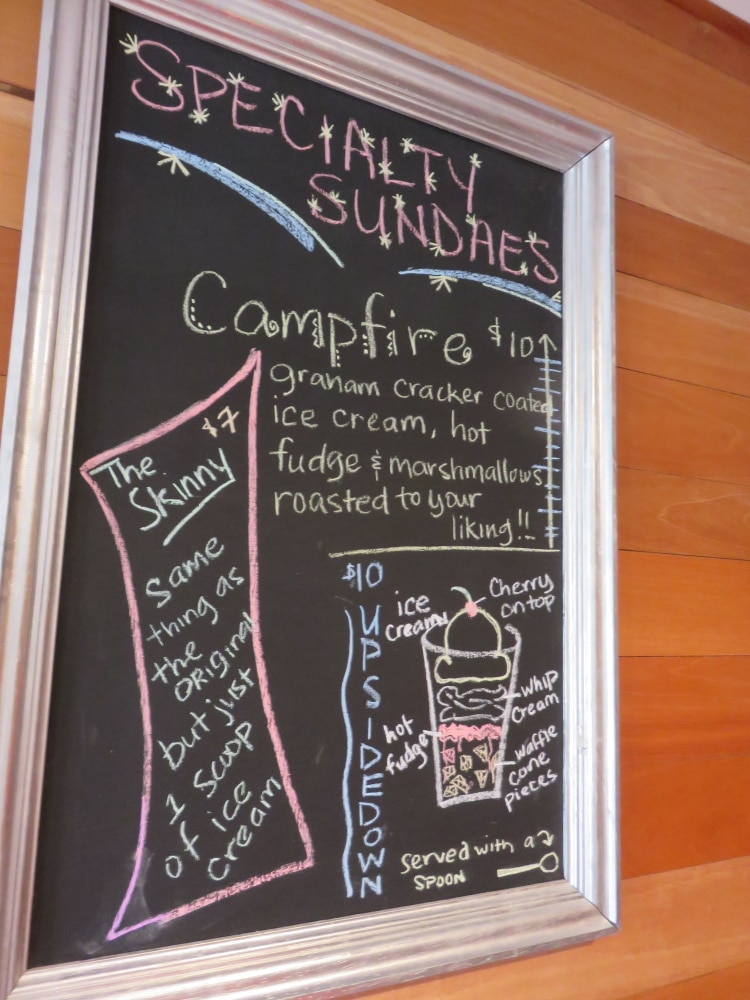 SPECIALTY
SUNDAES
Campfire $10
graham cracker coated
ice cream, hot
fudge & marshmallows
roasted to your
liking!!
$7
The
Skinny
Same
thing as
the
ORiginal
but just
1 Scoop
of ice
cream
$10
UPSIDEDOWN
ice
cream
Cherry
on top
Whip
Cream
hot
fudge
Waffle
cone
pieces
Served with a
SPOON